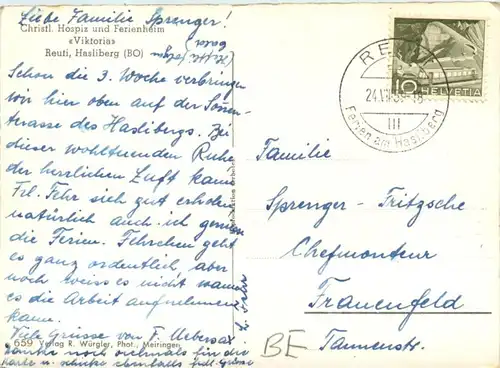 Liebe Familie Sprenger!
Christl. Hospiz und Ferienheim
«Viktoria»
Reuti, Hasliberg (BO)
Schon die 3. Woche verbringen
wir hier oben auf der Sonnen-
terasse des Haslibergs. Zu
dieser wohltuenden Ruhe
der herrlichen Luft kann
Frl. Fehr sich gut erholen
natürlich auch ich geniesse
die Ferien. Fehrchen geht
es ganz ordentlich, aber
noch weiss es nicht wann
es die Arbeit aufnehmen
kann.
Viele Grüsse von F. Uebersax
659 Verlag R. Würgler, Phot., Meiringen
Danke noch vielmals für die
Karte u. ebenfalls frdl. Grüsse
L. Fehr
REUTI
24.VII.
18
III
Ferien am Hasliberg
10 HELVETIA
Familie
Sprenger-Fritzsche
Chefmonteur
Frauenfeld
Tannenstr.
BE